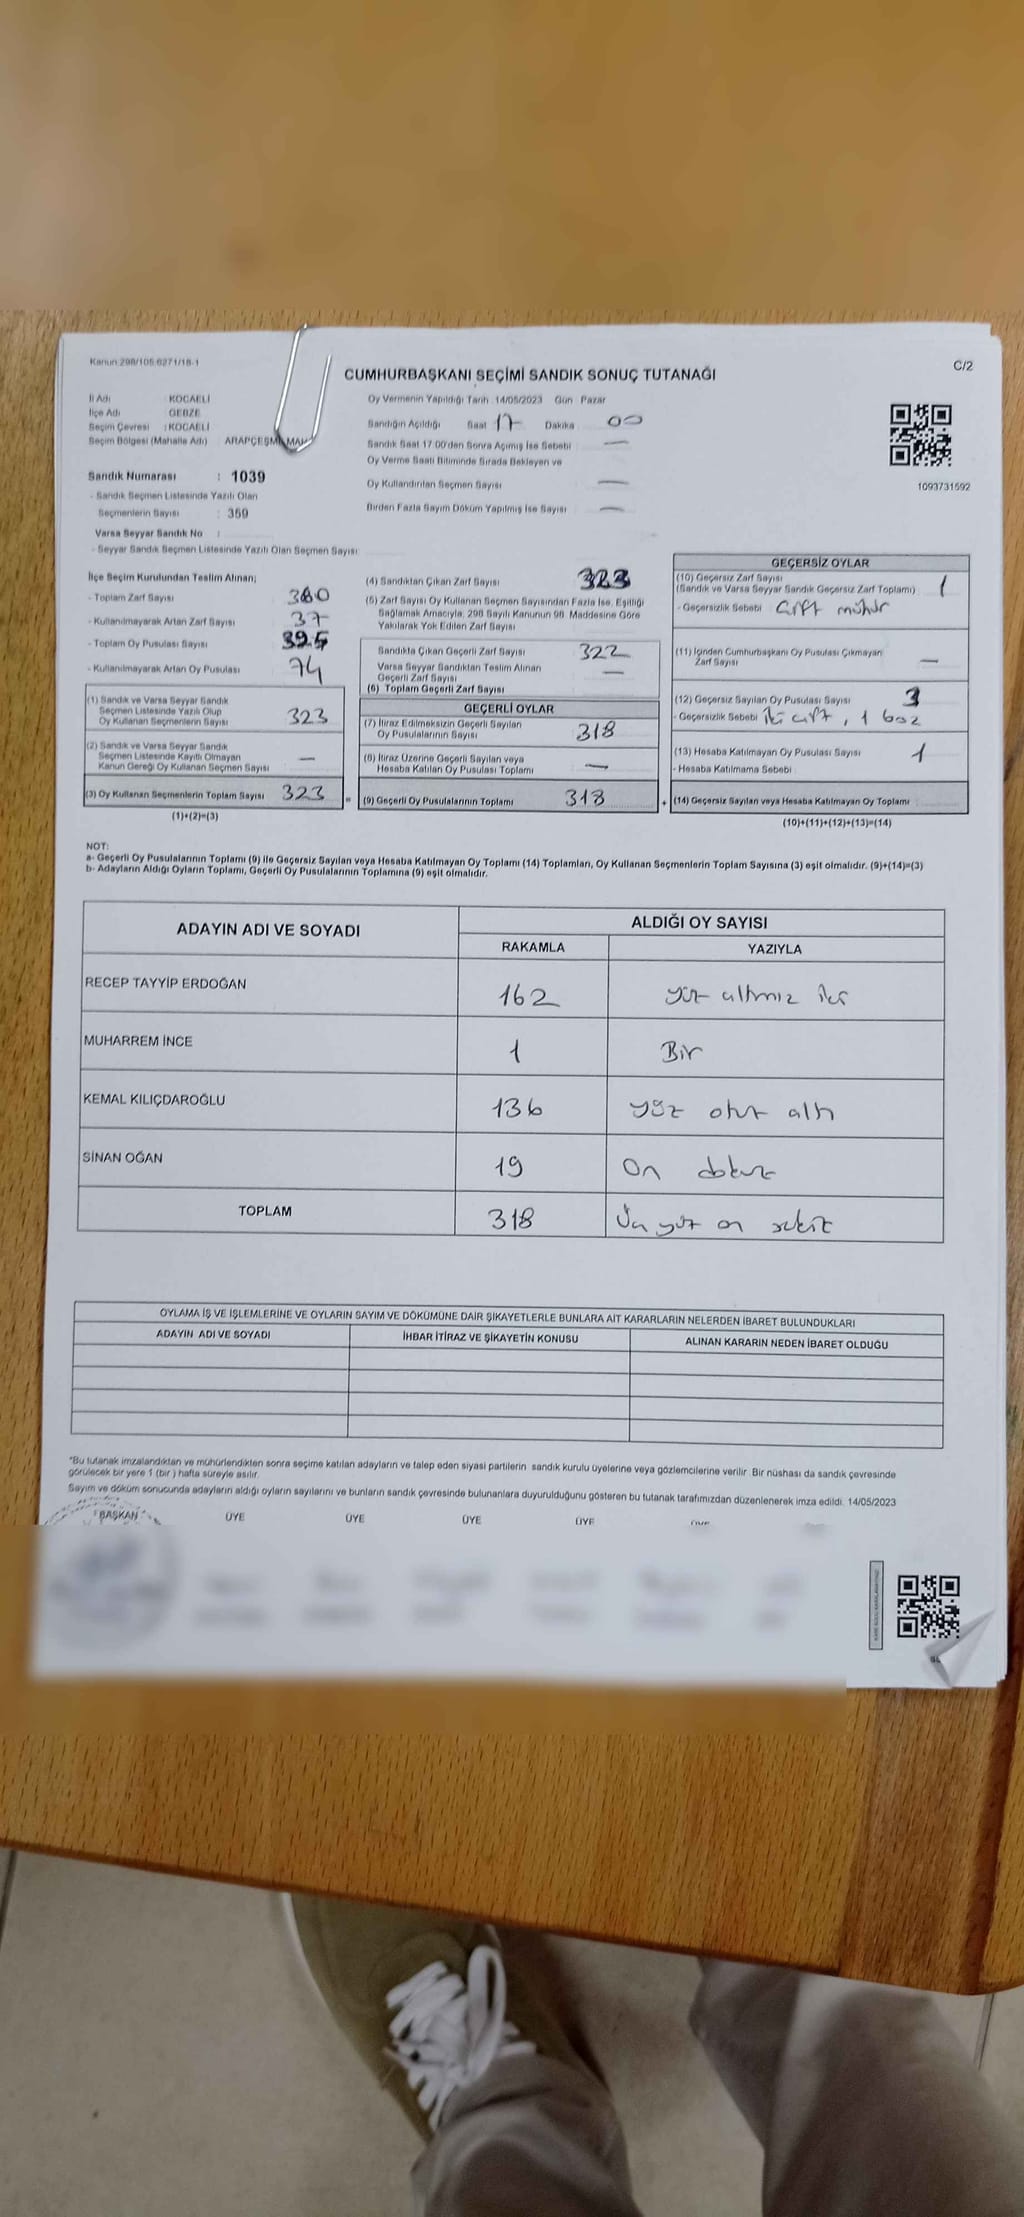 Kanun:298/105.6271/18-1
C/2
CUMHURBAŞKANI SEÇİMİ SANDIK SONUÇ TUTANAĞI
İl Adı : KOCAELİ
İlçe Adı : GEBZE
Seçim Çevresi : KOCAELİ
Seçim Bölgesi (Mahalle Adı) : ARAPÇEŞME MAH.
Sandık Numarası : 1039
- Sandık Seçmen Listesinde Yazılı Olan
Seçmenlerin Sayısı : 359
Varsa Seyyar Sandık No :
- Seyyar Sandık Seçmen Listesinde Yazılı Olan Seçmen Sayısı:
Oy Vermenin Yapıldığı Tarih :14/05/2023 Gün : Pazar
Sandığın Açıldığı Saat 17 Dakika 00
Sandık Saat 17:00'den Sonra Açımış İse Sebebi —
Oy Verme Saati Bitiminde Sırada Bekleyen ve
Oy Kullandırılan Seçmen Sayısı —
Birden Fazla Sayım Döküm Yapılmış İse Sayısı —
1093731592
İlçe Seçim Kurulundan Teslim Alınan;
- Toplam Zarf Sayısı 360
- Kullanılmayarak Artan Zarf Sayısı 37
- Toplam Oy Pusulası Sayısı
- Kullanılmayarak Artan Oy Pusulası 74
(1) Sandık ve Varsa Seyyar Sandık
Seçmen Listesinde Yazılı Olup
Oy Kullanan Seçmenlerin Sayısı 323
(2) Sandık ve Varsa Seyyar Sandık
Seçmen Listesinde Kayıtlı Olmayan
Kanun Gereği Oy Kullanan Seçmen Sayısı —
(3) Oy Kullanan Seçmenlerin Toplam Sayısı 323
(1)+(2)=(3)
(4) Sandıktan Çıkan Zarf Sayısı 323
(5) Zarf Sayısı Oy Kullanan Seçmen Sayısından Fazla İse, Eşitliği
Sağlamak Amacıyla, 298 Sayılı Kanunun 98. Maddesine Göre
Yakılarak Yok Edilen Zarf Sayısı
Sandıkta Çıkan Geçerli Zarf Sayısı 322
Varsa Seyyar Sandıktan Teslim Alınan
Geçerli Zarf Sayısı —
(6) Toplam Geçerli Zarf Sayısı
GEÇERLİ OYLAR
(7) İtiraz Edilmeksizin Geçerli Sayılan
Oy Pusulalarının Sayısı 318
(8) İtiraz Üzerine Geçerli Sayılan veya
Hesaba Katılan Oy Pusulası Toplamı —
= (9) Geçerli Oy Pusulalarının Toplamı 318
GEÇERSİZ OYLAR
(10) Geçersiz Zarf Sayısı
(Sandık ve Varsa Seyyar Sandık Geçersiz Zarf Toplamı) 1
- Geçersizlik Sebebi Çift mühür
(11) İçinden Cumhurbaşkanı Oy Pusulası Çıkmayan
Zarf Sayısı —
(12) Geçersiz Sayılan Oy Pusulası Sayısı 3
- Geçersizlik Sebebi İki çift, 1 boz
(13) Hesaba Katılmayan Oy Pusulası Sayısı 1
- Hesaba Katılmama Sebebi
+ (14) Geçersiz Sayılan veya Hesaba Katılmayan Oy Toplamı :
(10)+(11)+(12)+(13)=(14)
NOT:
a- Geçerli Oy Pusulalarının Toplamı (9) ile Geçersiz Sayılan veya Hesaba Katılmayan Oy Toplamı (14) Toplamları, Oy Kullanan Seçmenlerin Toplam Sayısına (3) eşit olmalıdır. (9)+(14)=(3)
b- Adayların Aldığı Oyların Toplamı, Geçerli Oy Pusulalarının Toplamına (9) eşit olmalıdır.
ADAYIN ADI VE SOYADI
ALDIĞI OY SAYISI
RAKAMLA YAZIYLA
RECEP TAYYİP ERDOĞAN 162 yüz altmış iki
MUHARREM İNCE 1 Bir
KEMAL KILIÇDAROĞLU 136 yüz otuz altı
SİNAN OĞAN 19 On dokuz
TOPLAM 318 Üç yüz on sekiz
OYLAMA İŞ VE İŞLEMLERİNE VE OYLARIN SAYIM VE DÖKÜMÜNE DAİR ŞİKAYETLERLE BUNLARA AİT KARARLARIN NELERDEN İBARET BULUNDUKLARI
ADAYIN ADI VE SOYADI İHBAR İTİRAZ VE ŞİKAYETİN KONUSU ALINAN KARARIN NEDEN İBARET OLDUĞU
*Bu tutanak imzalandıktan ve mühürlendikten sonra seçime katılan adayların ve talep eden siyasi partilerin sandık kurulu üyelerine veya gözlemcilerine verilir. Bir nüshası da sandık çevresinde
görülecek bir yere 1 (bir ) hafta süreyle asılır.
Sayım ve döküm sonucunda adayların aldığı oyların sayılarını ve bunların sandık çevresinde bulunanlara duyurulduğunu gösteren bu tutanak tarafımızdan düzenlenerek imza edildi. 14/05/2023
BAŞKAN ÜYE ÜYE ÜYE ÜYE